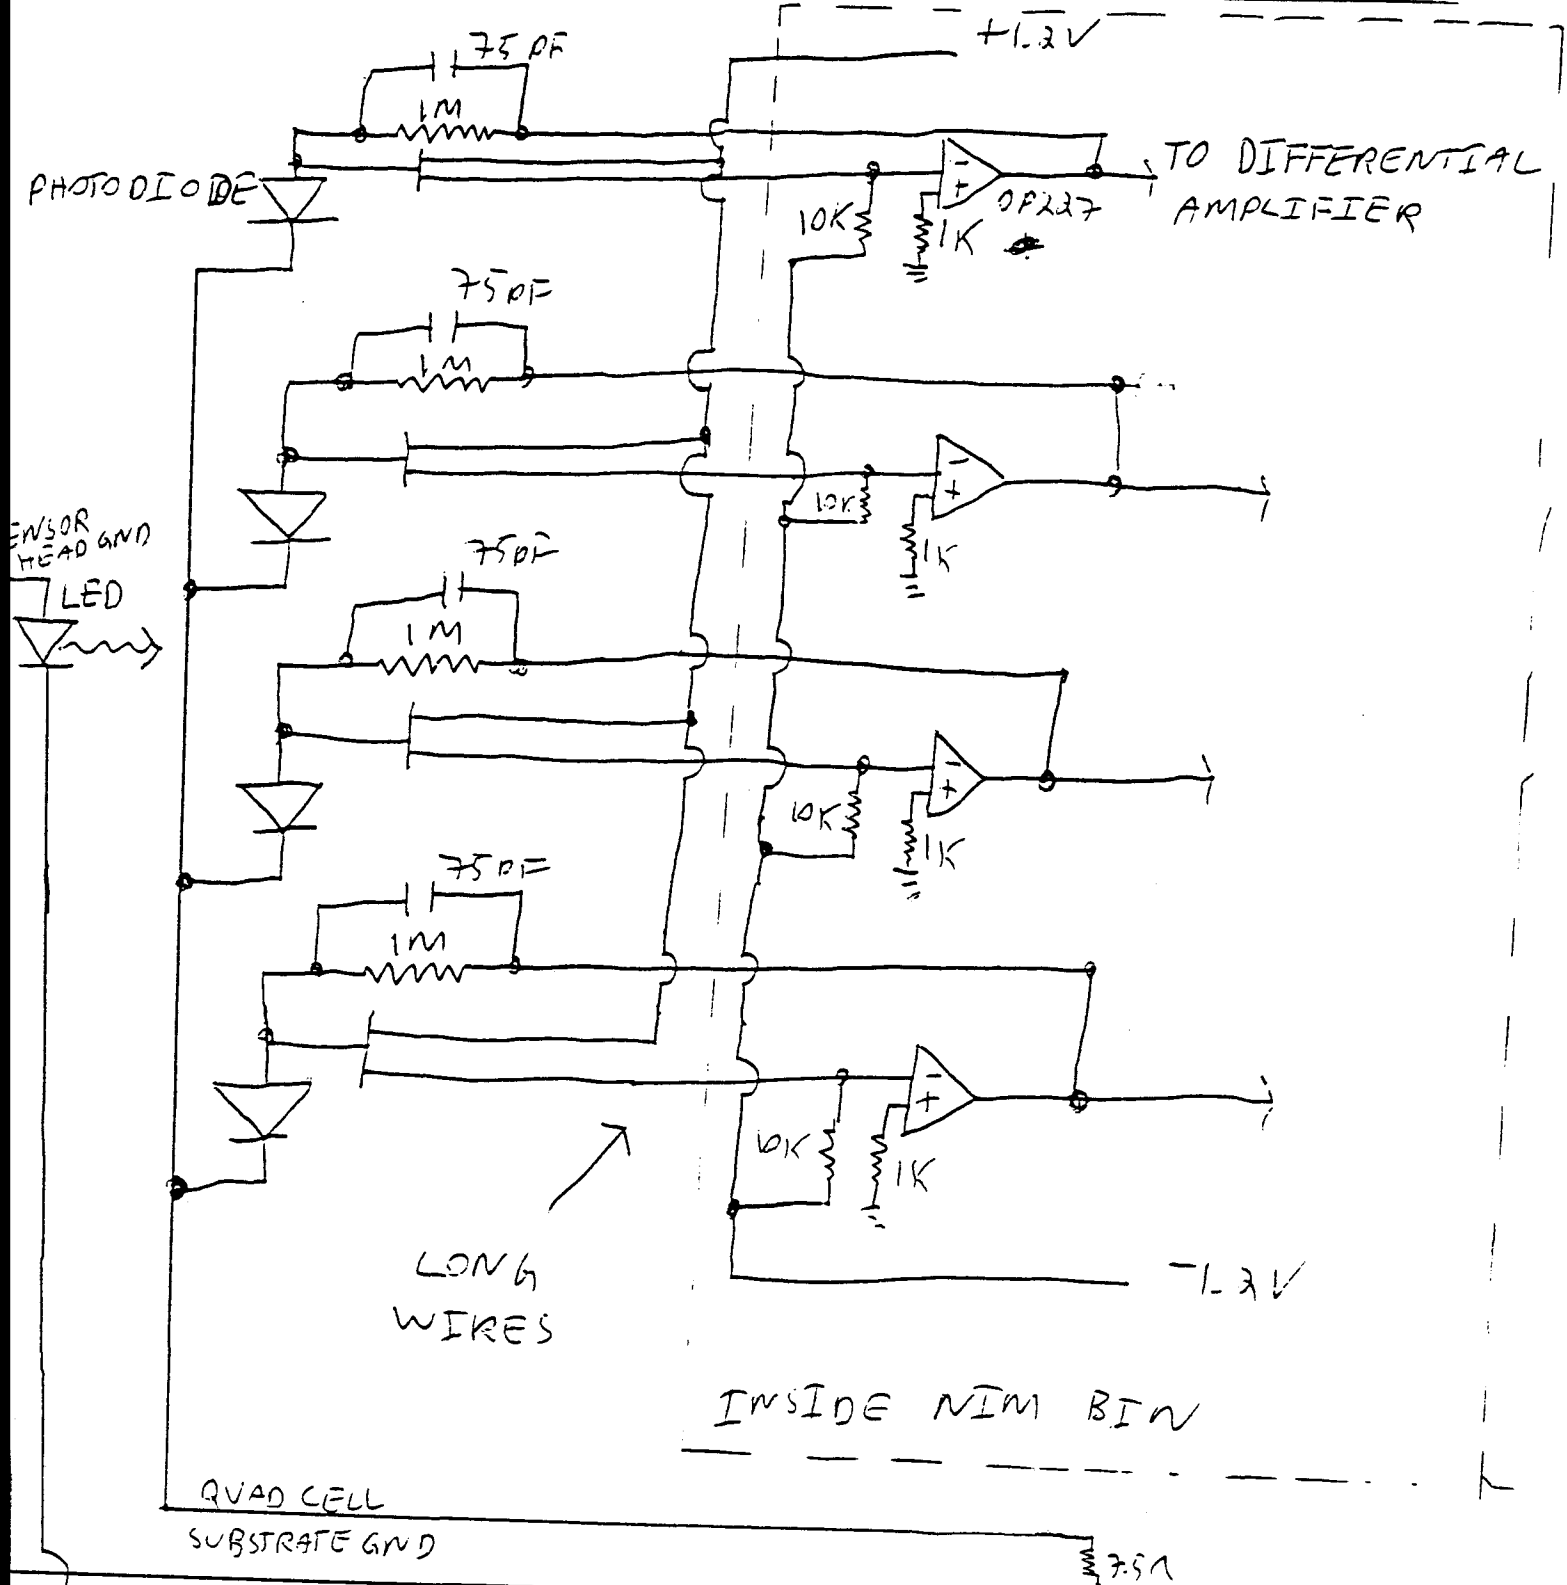 +1.2V
75 pF
1M
PHOTODIODE
TO DIFFERENTIAL
AMPLIFIER
10K
1K
OP227
75 pF
1M
10K
1K
ENSOR
HEAD GND
LED
75 pF
1M
10K
1K
75 pF
1M
10K
1K
LONG
WIRES
-1.2V
INSIDE NIM BIN
QUAD CELL
SUBSTRATE GND
7.5Ω